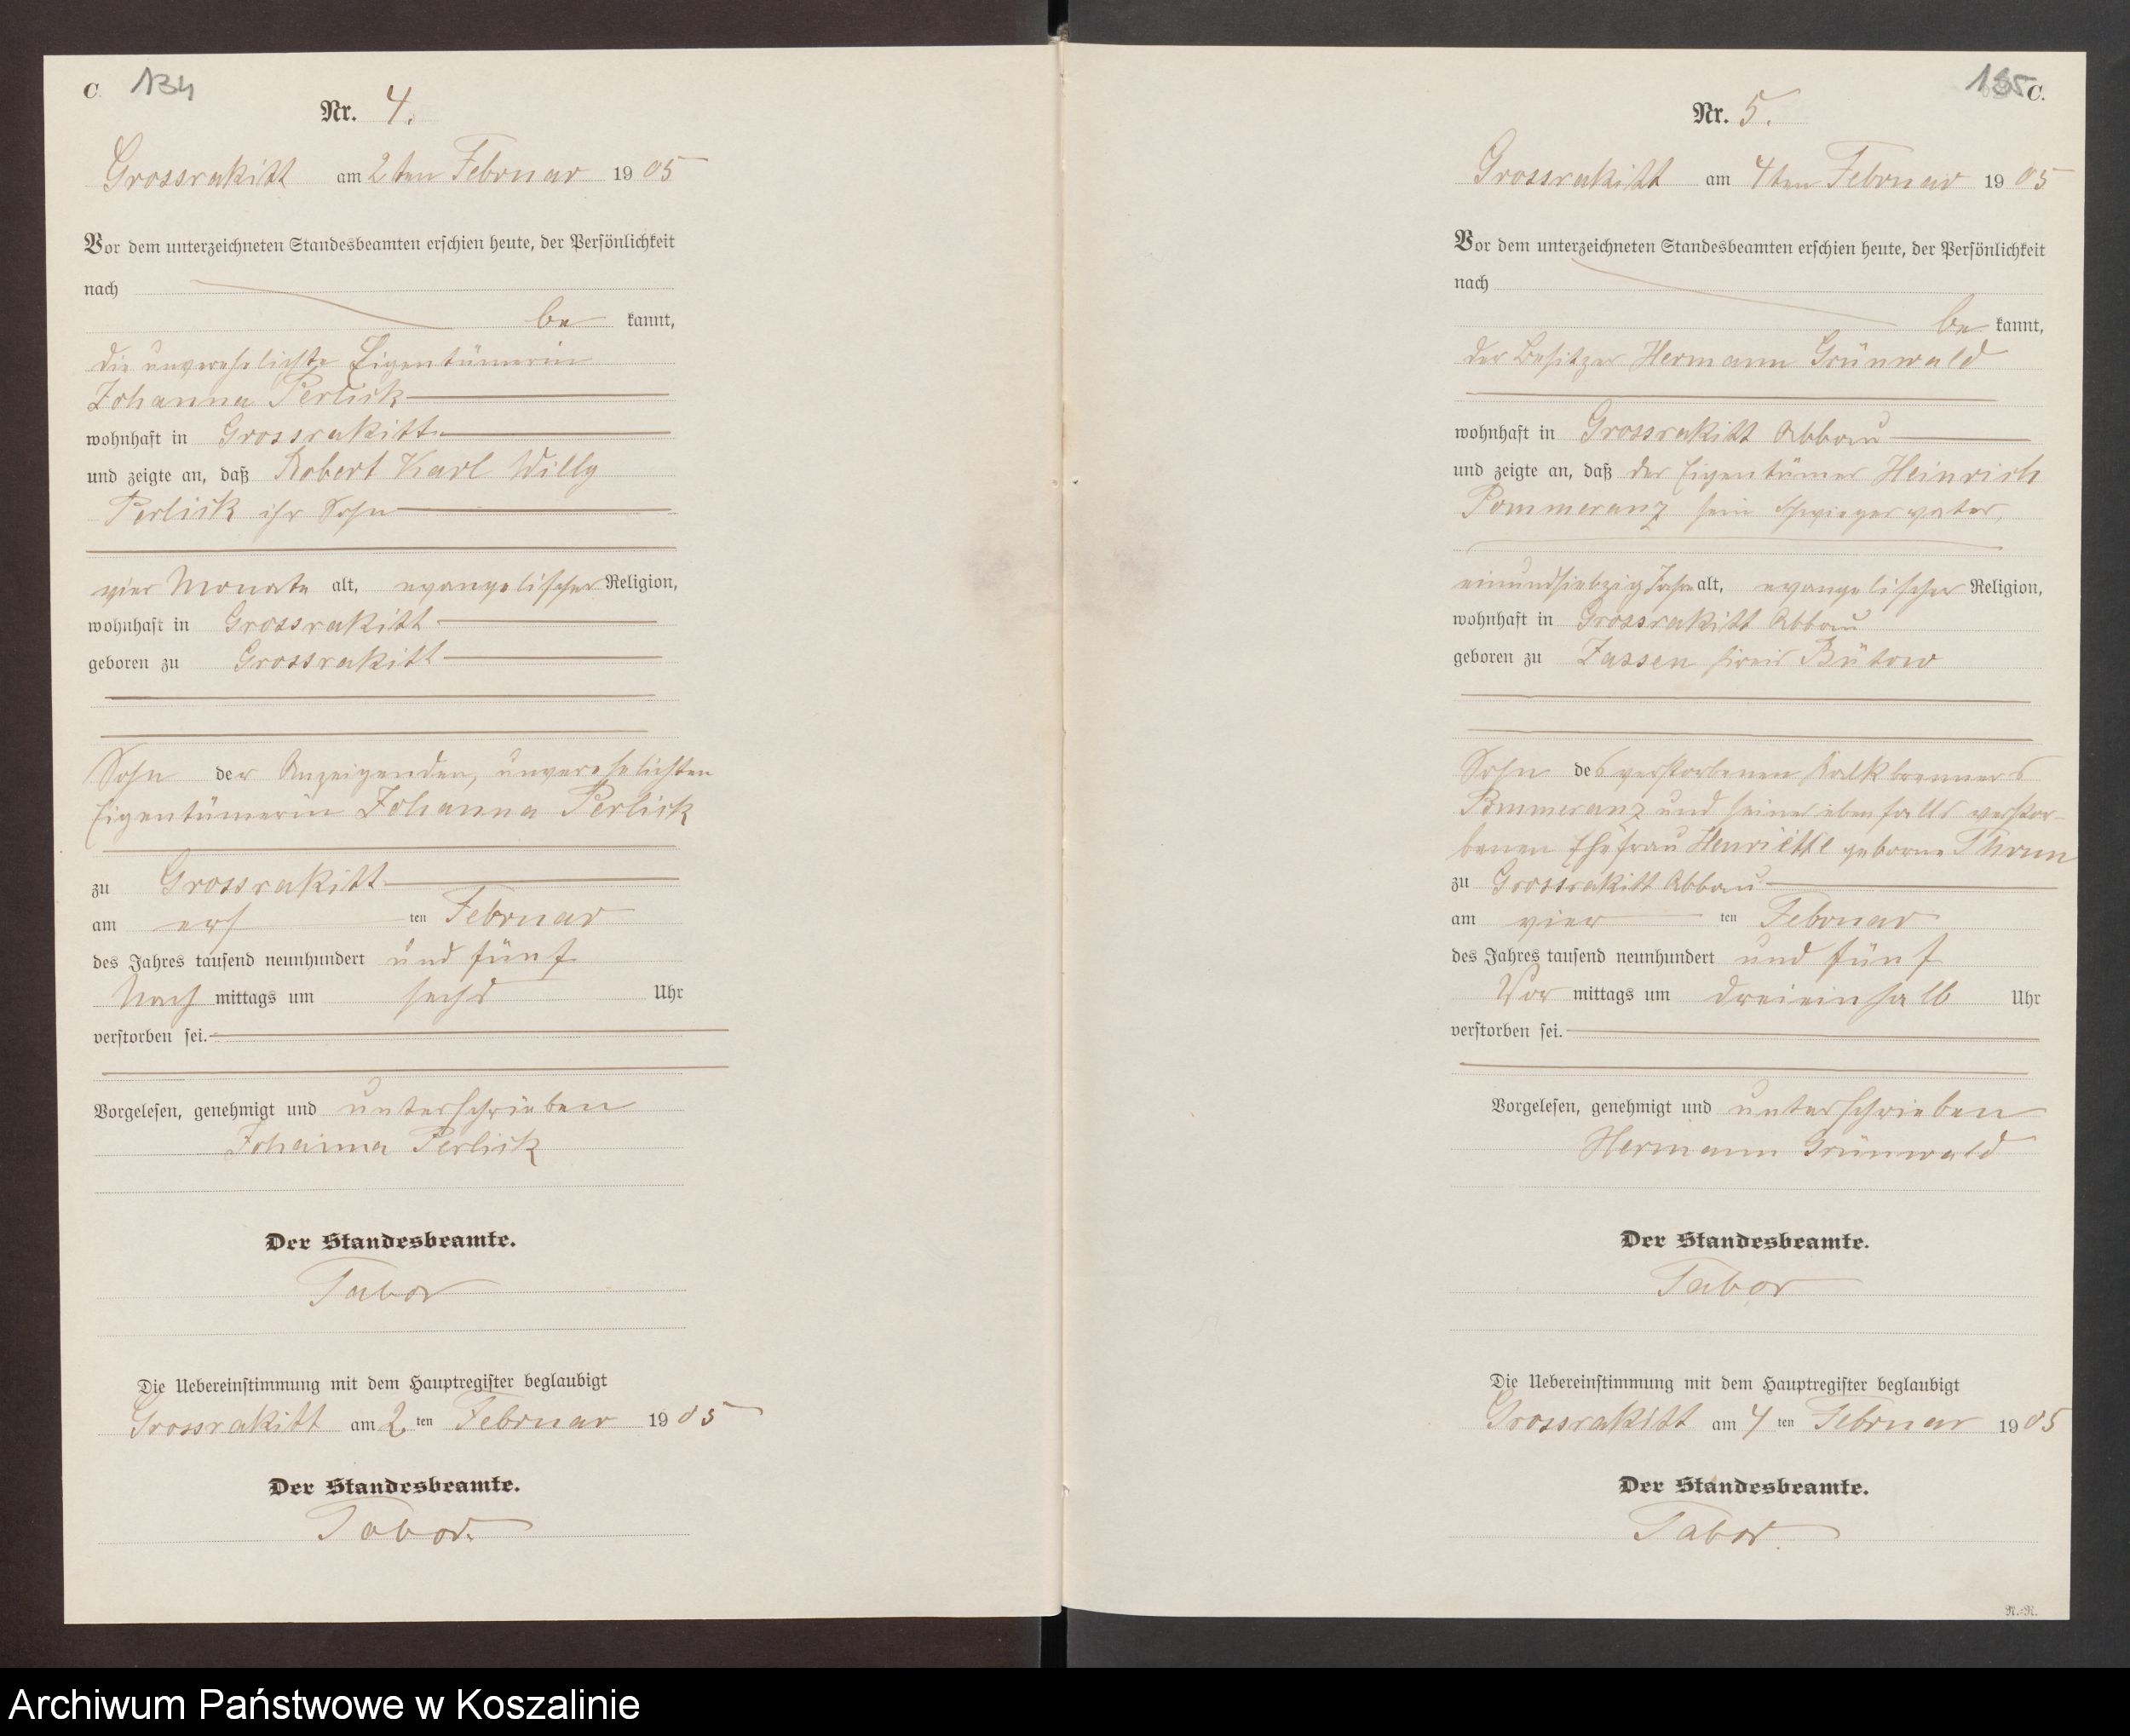 C. 134
Nr. 4.
Grossrakitt am 2ten Februar 1905
Vor dem unterzeichneten Standesbeamten erschien heute, der Persönlichkeit
nach
be kannt,
die unverehelichte Eigentümerin
Johanna Perlick
wohnhaft in Grossrakitt
und zeigte an, daß Robert Karl Willy
Perlick ihr Sohn
vier Monate alt, evangelischer Religion,
wohnhaft in Grossrakitt
geboren zu Grossrakitt
Sohn der Anzeigenden, unverehelichten
Eigentümerin Johanna Perlick
zu Grossrakitt
am ers ten Februar
des Jahres tausend neunhundert und fünf
Nach mittags um sechs Uhr
verstorben sei.
Vorgelesen, genehmigt und unterschrieben
Johanna Perlick
Der Standesbeamte.
Tabor
Die Uebereinstimmung mit dem Hauptregister beglaubigt
Grossrakitt am 2. ten Februar 1905
Der Standesbeamte.
Tabor.
135 C.
Nr. 5.
Grossrakitt am 4ten Februar 1905
Vor dem unterzeichneten Standesbeamten erschien heute, der Persönlichkeit
nach
be kannt,
der Besitzer Hermann Grünwald
wohnhaft in Grossrakitt Abbau
und zeigte an, daß der Eigentümer Heinrich
Pommeranz sein Schwiegervater,
einundsiebzig Jahre alt, evangelischer Religion,
wohnhaft in Grossrakitt Abbau
geboren zu Jassen Kreis Bütow
Sohn des verstorbenen Kalkbrenners
Pommeranz und seiner ebenfalls verstor-
benen Ehefrau Henriette geborne Thrun
zu Grossrakitt Abbau
am vier ten Februar
des Jahres tausend neunhundert und fünf
Vor mittags um dreieinhalb Uhr
verstorben sei.
Vorgelesen, genehmigt und unterschrieben
Hermann Grünwald
Der Standesbeamte.
Tabor
Die Uebereinstimmung mit dem Hauptregister beglaubigt
Grossrakitt am 4 ten Februar 1905
Der Standesbeamte.
Tabor.
Archiwum Państwowe w Koszalinie